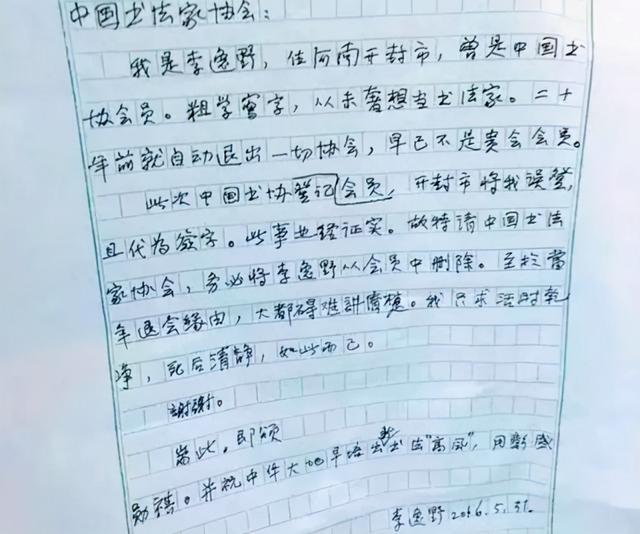 中国书法家协会：
我是李逸野，住河南开封市，曾是中国书
协会员。粗学写字，从未奢想当书法家。二十
年前就自动退出一切协会，早已不是贵会会员。
此次中国书协登记会员，开封市将我误登，
且代为签字。此事业经证实。故特请中国书法
家协会，务必将李逸野从会员中删除。至於当
年退会缘由，大都碍难讲清楚。我只求活时乾
净，死后清静，如此而已。
谢谢。
耑此，即颂
勋祺。并祝中华大地早培出书法"高风"，用彰盛
李逸野 2016.5.31.